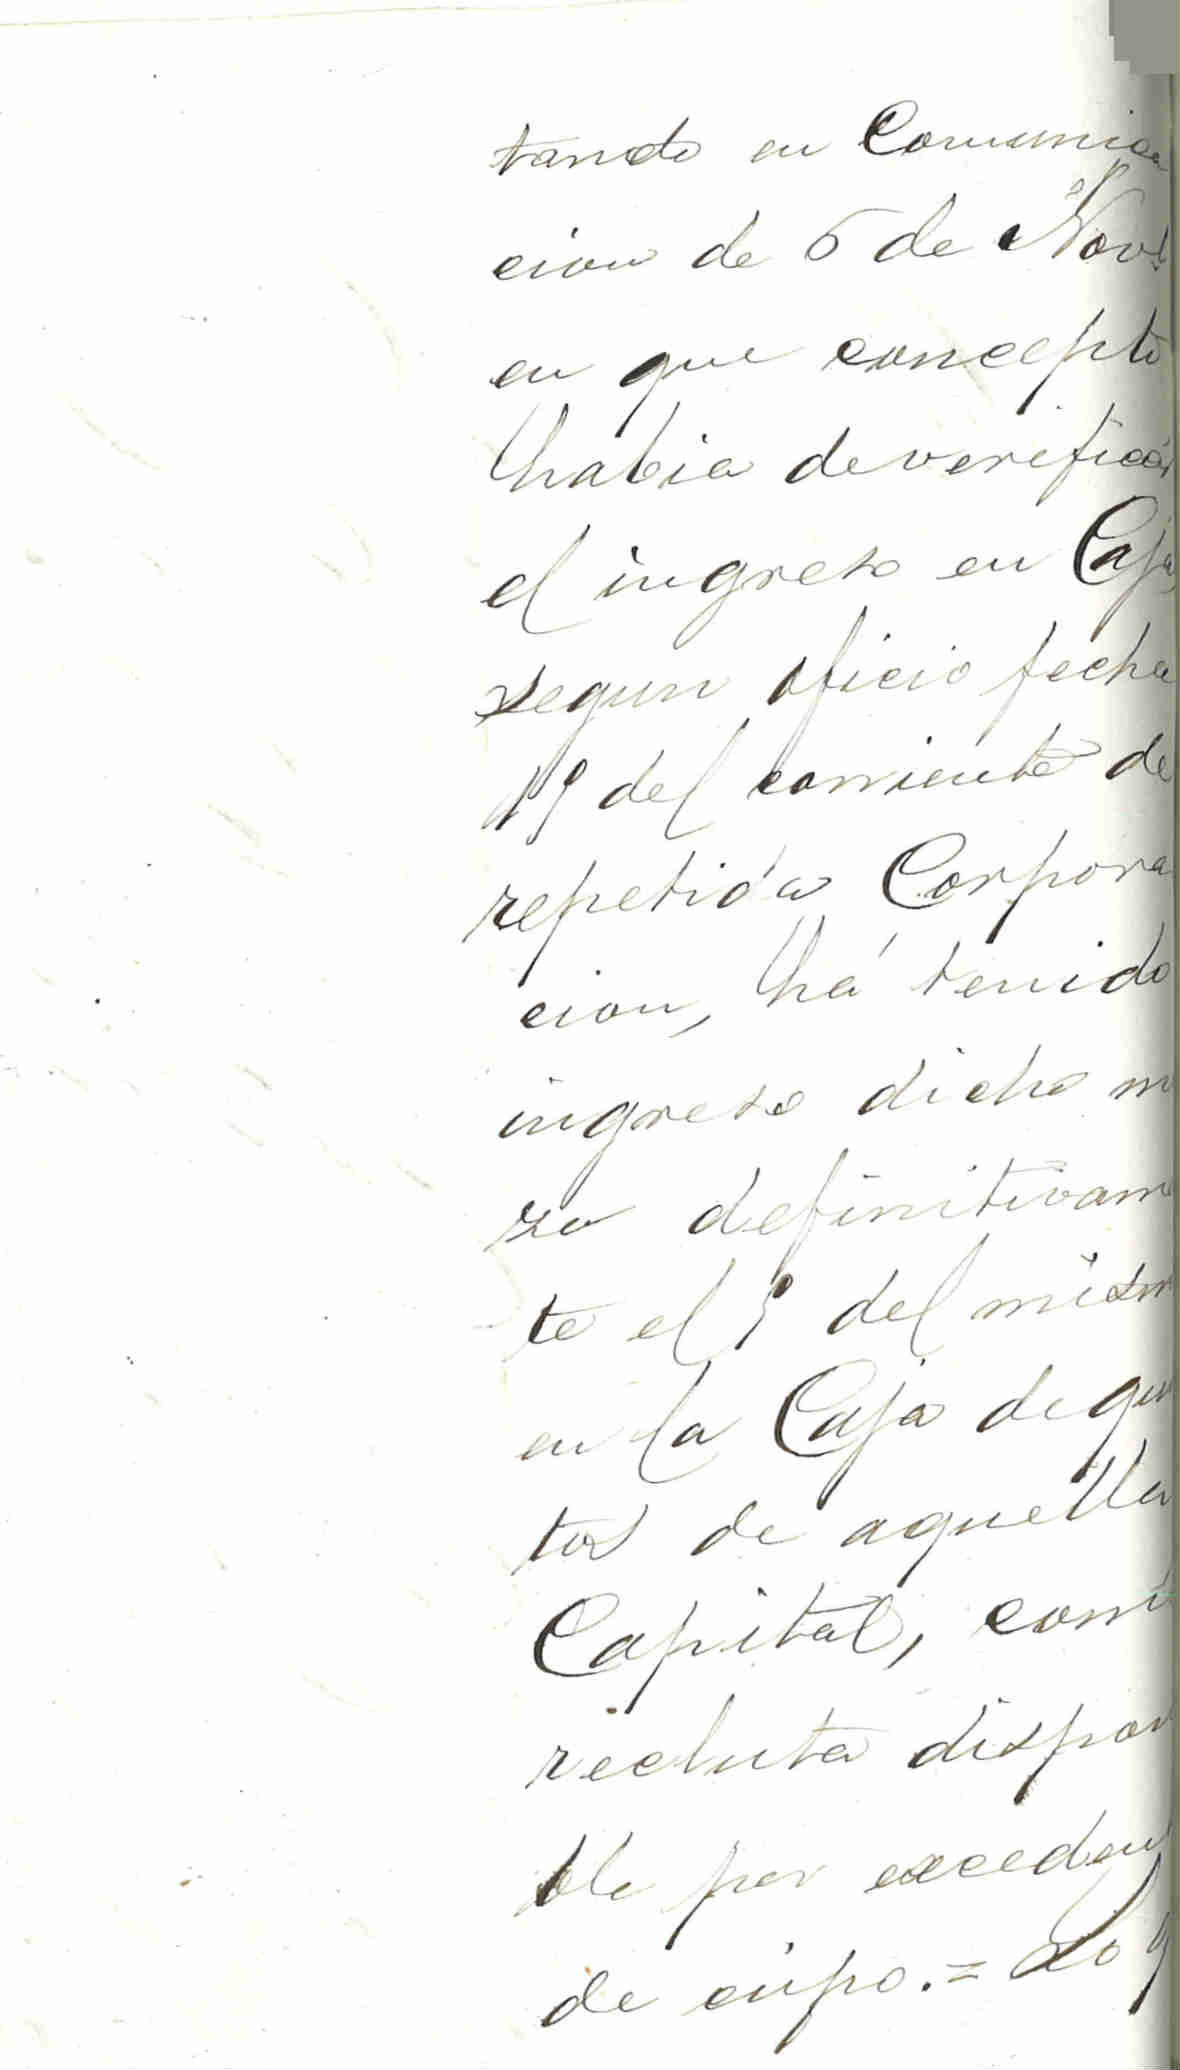 tando en Comunica
cion de 6 de Nove
en que concepto
habia de verificár
el ingreso en Caja
segun oficio fecha
19 del corriente de
repetida Corpora
cion, há tenido
ingreso dicho m
zo definitivam
te el 9 del mism
en la Caja de quin
tos de aquella
Capital, como
recluta dispon
ble por exceden
de cupo. = Lo q